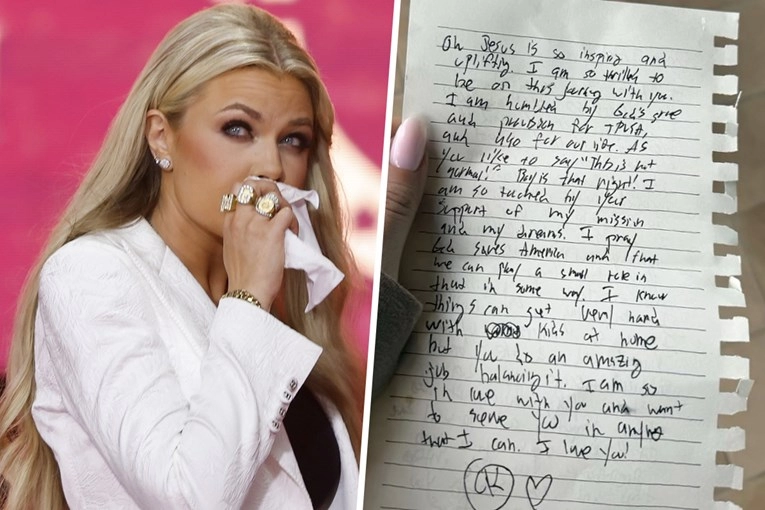 Oh Jesus is so inspring and
uplifting. I am so thrilled to
be on this journey with you.
I am humbled by God's grace
and provision for TPUSA,
and also for our life. As
you like to say "This is not
normal!" Boy is that right! I
am so touched by your
support of my mission
and my dreams. I pray
God saves America and that
we can play a small role in
that in some way. I know
things can get very hard
with kids at home
but you do an amazing
job balancing it. I am so
in love with you and want
to serve you in anyway
that I can. I love you!
CK